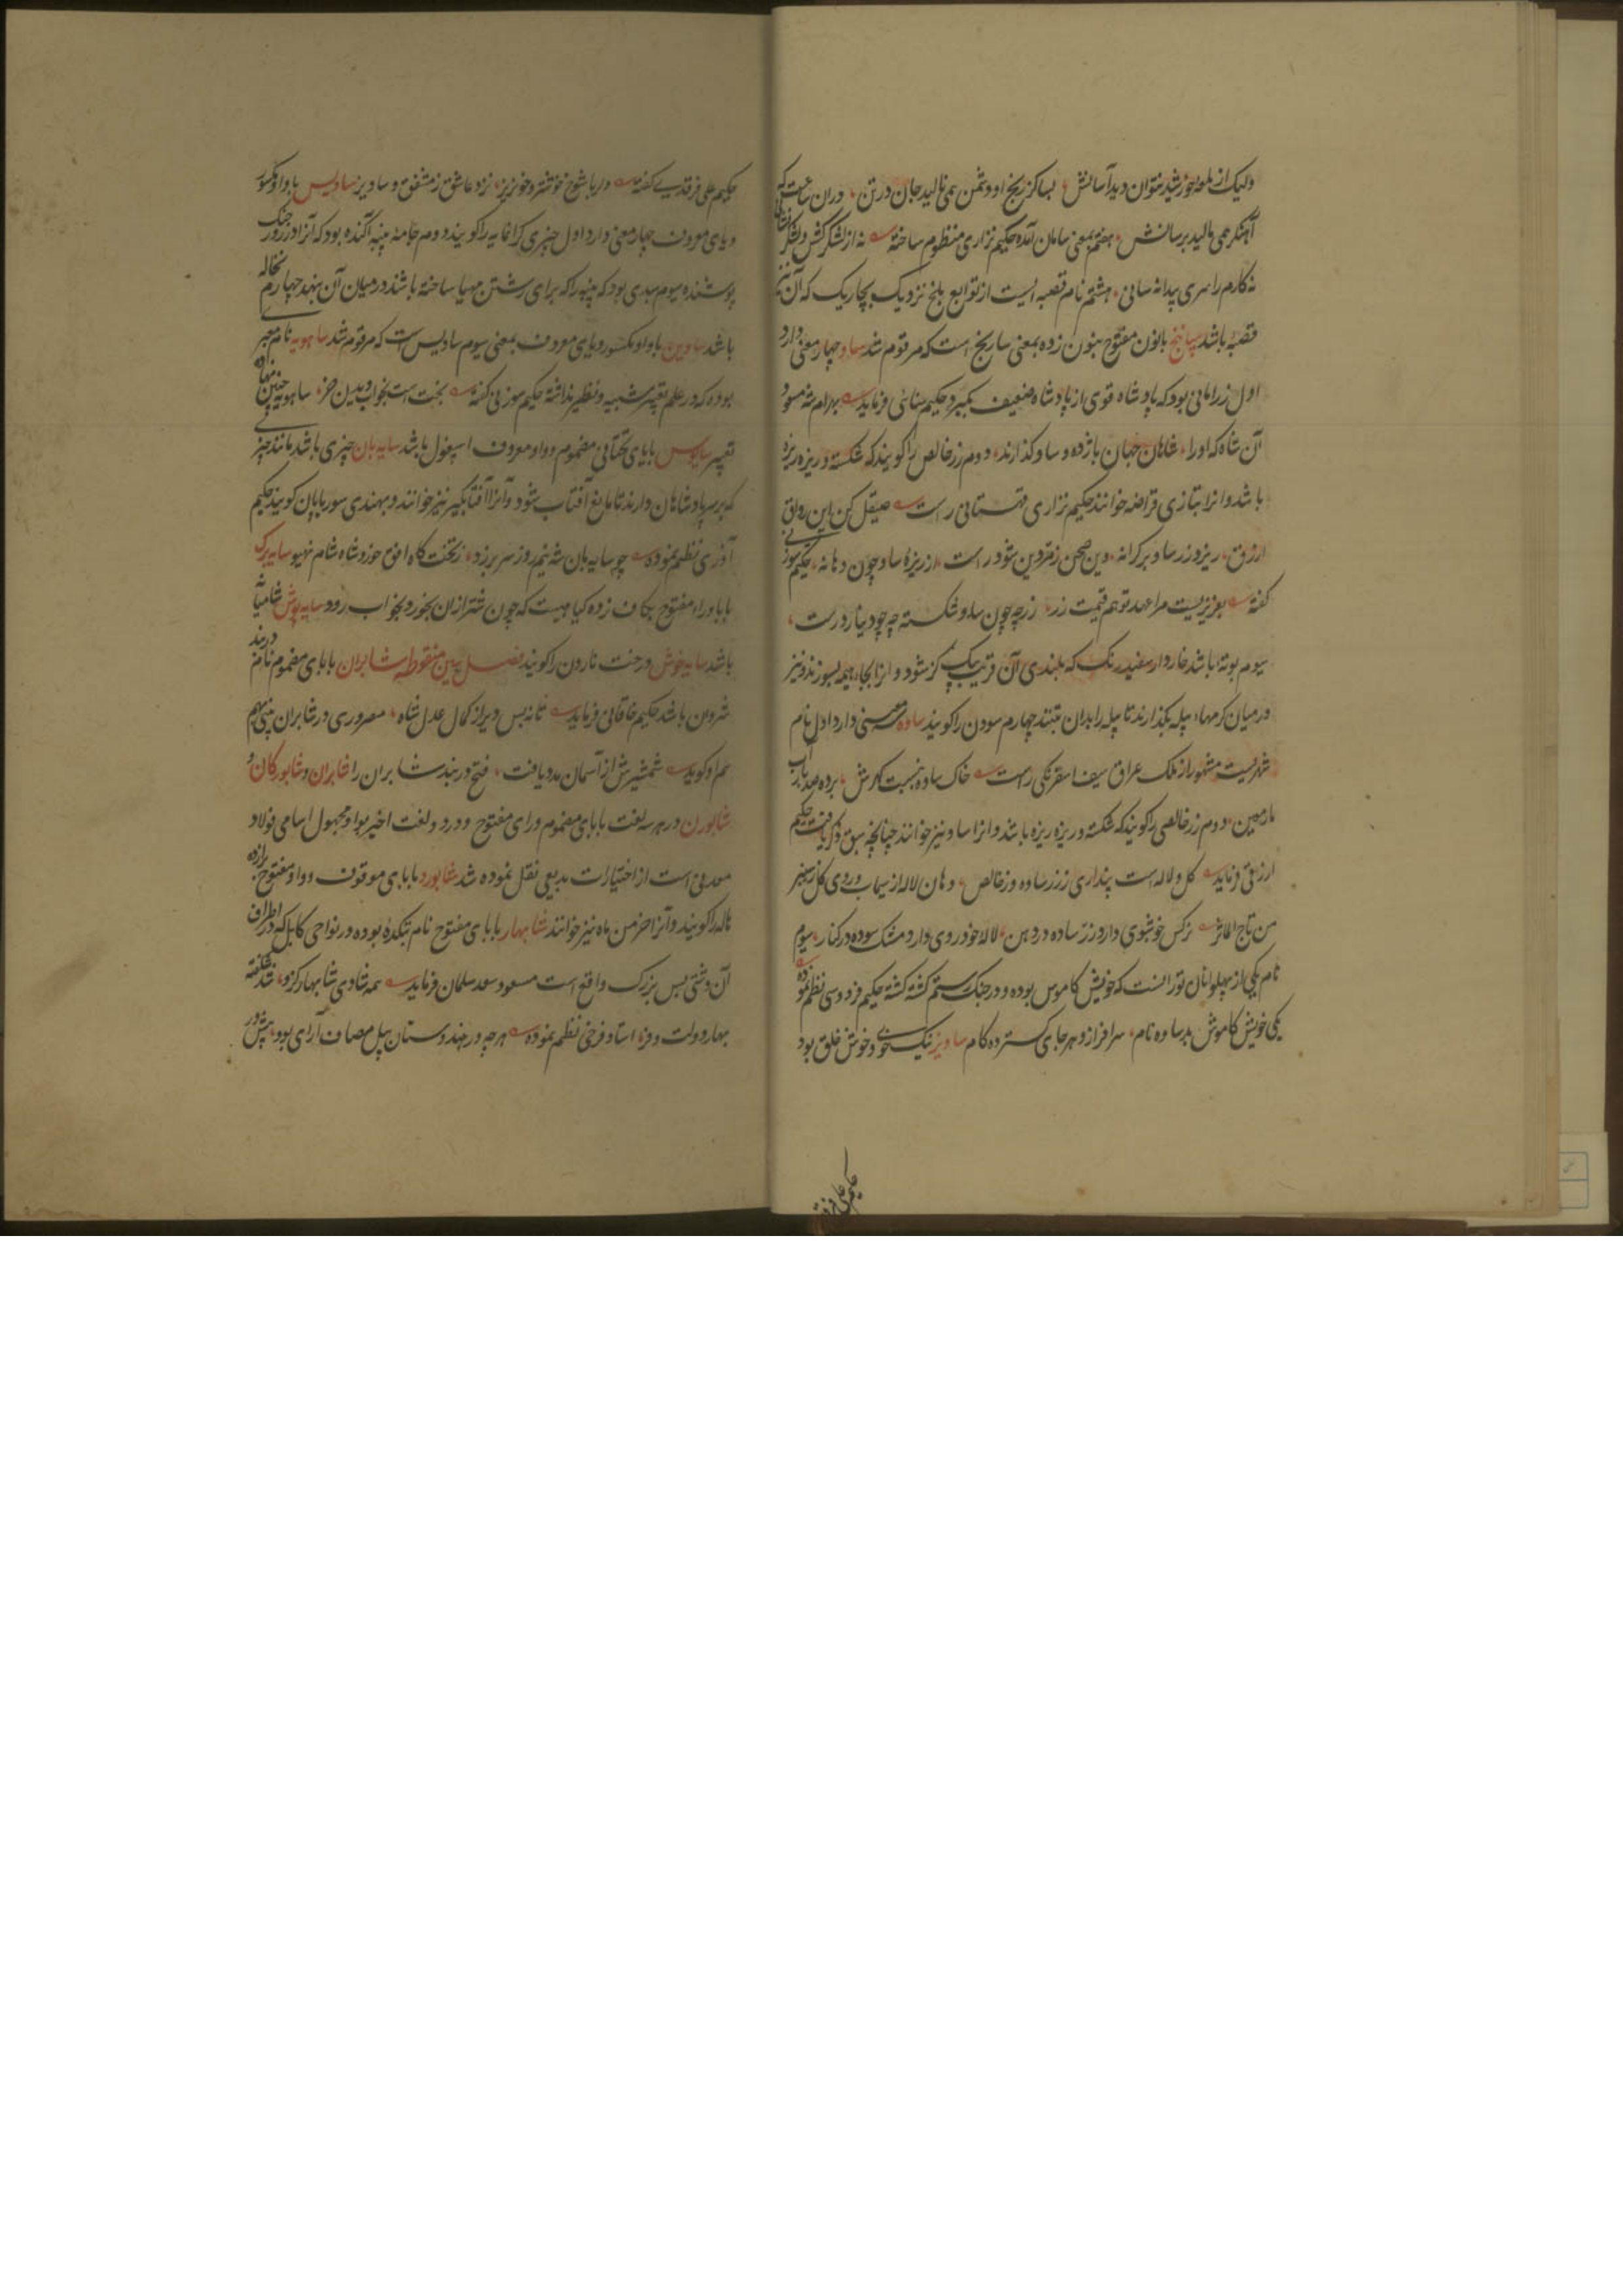 ولیک از ملحه خورشید نتوان دید آسانش بسا کز رنج او دشمن همی نالید جان در تن دران ساعت که
آهنگر همی مالید بر سانش هفتم بمعنی سامان آمده حکیم نزاری منظوم ساخته نه از لشکرکش و لشکر نشانی
نه کارم را سری پیدا نه سانی هشتم نام قصبه ایست از توابع بلخ نزدیک بچاریک که آن نیز
قصبه باشد سانج بانون مفتوح بنون زده بمعنی سارنج است که مرقوم شد ساو چهار معنی دارد
اول زر امانی بود که پادشاه قوی از پادشاه ضعیف بگیرد حکیم سنائی فرماید بهرام شه مسعود
آن شاه که او را شاهان جهان باژ ده و ساو گذارند دوم زر خالص را گویند که شکسته و ریزه ریزه
باشد و انرا بتازی قراضه خوانند حکیم نزاری قهستانی راست صیقل کن این رواق
ازرق ریز و زر ساو بر کرانه وین صحن زمردین شود راست از ریزهٔ ساو چون دهانه حکیم سوزنی
گفته بعزیزیست مرا عهد تو هم قیمت زر زر چه چون ساو شکسته چه چو دینار درست
سیوم بوته باشد خاردار سفید رنگ که بلندی آن قریب یک گز شود و انرا بجای هیمه بسوزند و نیز
در میان کرمهاء پیله بگذارند تا پیله را بدان تنند چهارم سودن را گویند ساوه سه معنی دارد اول نام
شهریست مشهور از ملک عراق سیف اسفرنگی راست خاک ساوه بنسبت کرمش برده صد باب آب
مارمعین دوم زر خالص را گویند که شکسته و ریزه ریزه باشد و انرا ساو نیز خوانند چنانچه سبق ذکر یافت حکیم
ازرقی فرماید گل و لاله است پنداری ززر ساوه و زر خالص دهان لاله از سیماب و روی گل ز سنبر
من تاج المآثر نرگس خوشبوی دارد زر ساوه در دهن لاله خودروی دارد مشک سوده در کنار سیوم
نام یکی از پهلوانان تورانست که خویش کاموس بوده و در جنگ رستم کشته گشته حکیم فردوسی نظم نموده
یکی خویش کاموش بد ساوه نام سرافراز و هر جای گسترده کام ساویز نیک خوی و خوش خلق بود
حکیم علی فرقدی
حکیم علی فرقدی گفته دلربا شوخ فتنه و خونریز نزد عاشق ز مشفق و ساویز ساویس با واو مکسور
و یای معروف چهار معنی دارد اول چیزی گرانمایه را گویند دوم جامهٔ پنبه آکنده بود که آنرا در روز جنگ
پوشند سیوم سبدی بود که پنبه را که برای رشتن مهیا ساخته باشند در میان آن بنهند چهارم نخاله
باشد ساوین با واو مکسور و یای معروف بمعنی سیوم ساویس است که مرقوم شد ساهویه نام معبر
بوده که در علم تعبیر شبیه و نظیر نداشته حکیم سوزنی گفته بخت است بخواب و بدین خز ساهویه چنین نهاده
تعبیر سایوس با یای تحتانی مضموم و واو معروف اسپغول باشد سایه بان چیزی باشد مانند چتر
که بر سر پادشاهان دارند تا مانع آفتاب شود و آنرا آفتابگیر نیز خوانند و بهندی سورباپان گویند حکیم
آذری نظم نموده چو سایه بان شه نیم روز سر بر زد ز تختگاه افق خورد شاه شام نهیب سایه برک
با با و راء مفتوح بکاف زده گیاهیست که چون شتر ازان بخورد بخواب رود سایه پوش شامیانه
باشد سایه خوش درخت نارون را گویند فصل شین منقوطه شابران با بای مضموم نام دربند
شروان باشد حکیم خاقانی فرماید تا نه بس دیر از کمال عدل شاه مصر وری در شابران بینی بهم
هم او گوید شمشیرش از آسمان مدد یافت فتح دربند شابران را شابران و شابورکان و
شابورن در هر سه لغت با بای مضموم و رای مفتوح و در دو لغت اخیر بواو مجهول اسامی فولاد
معدنی است از اختیارات بدیعی نقل نموده شد شابورد با بای موقوف و واو مفتوح برا زده
هاله را گویند و آنرا خرمن ماه نیز خوانند شابهار با بای مفتوح نام بتکدهٔ بوده در نواحی کابل که در اطراف
آن دشتی بس بزرگ واقع است مسعود سعد سلمان فرماید همه شادی شابهار کزو شد شکفته
بهار دولت و فر استاد فرخی نظم نموده هرچه در هندوستان پیل مصاف آرای بود پیش در